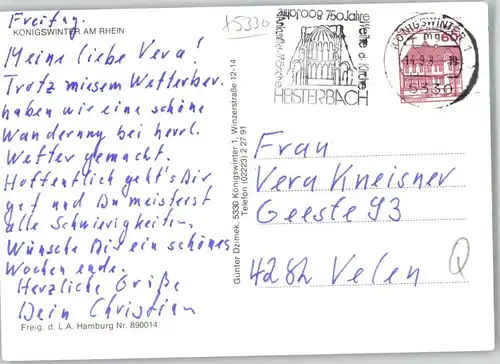 Freitag.
KÖNIGSWINTER AM RHEIN
Meine liebe Vera!
Trotz miesem Wetterber.
haben wir eine schöne
Wanderung bei herrl.
Wetter gemacht.
Hoffentlich geht's Dir
gut und Du meisterst
alle Schwierigkeiten.
Wünsche Dir ein schönes
Wochenende.
Herzliche Grüße
Dein Christian
Freig. d. L.A. Hamburg Nr. 890014
Günter Dzimek, 5330 Königswinter 1, Winzerstraße 12-14
Telefon (02223) 2 27 91
5330
800 Jahre
750 Jahre
Weihe d. Kirche
HEISTERBACH
KÖNIGSWINTER 1
5330
60
Frau
Vera Kneisner
Geeste 93
4282 Velen
Q